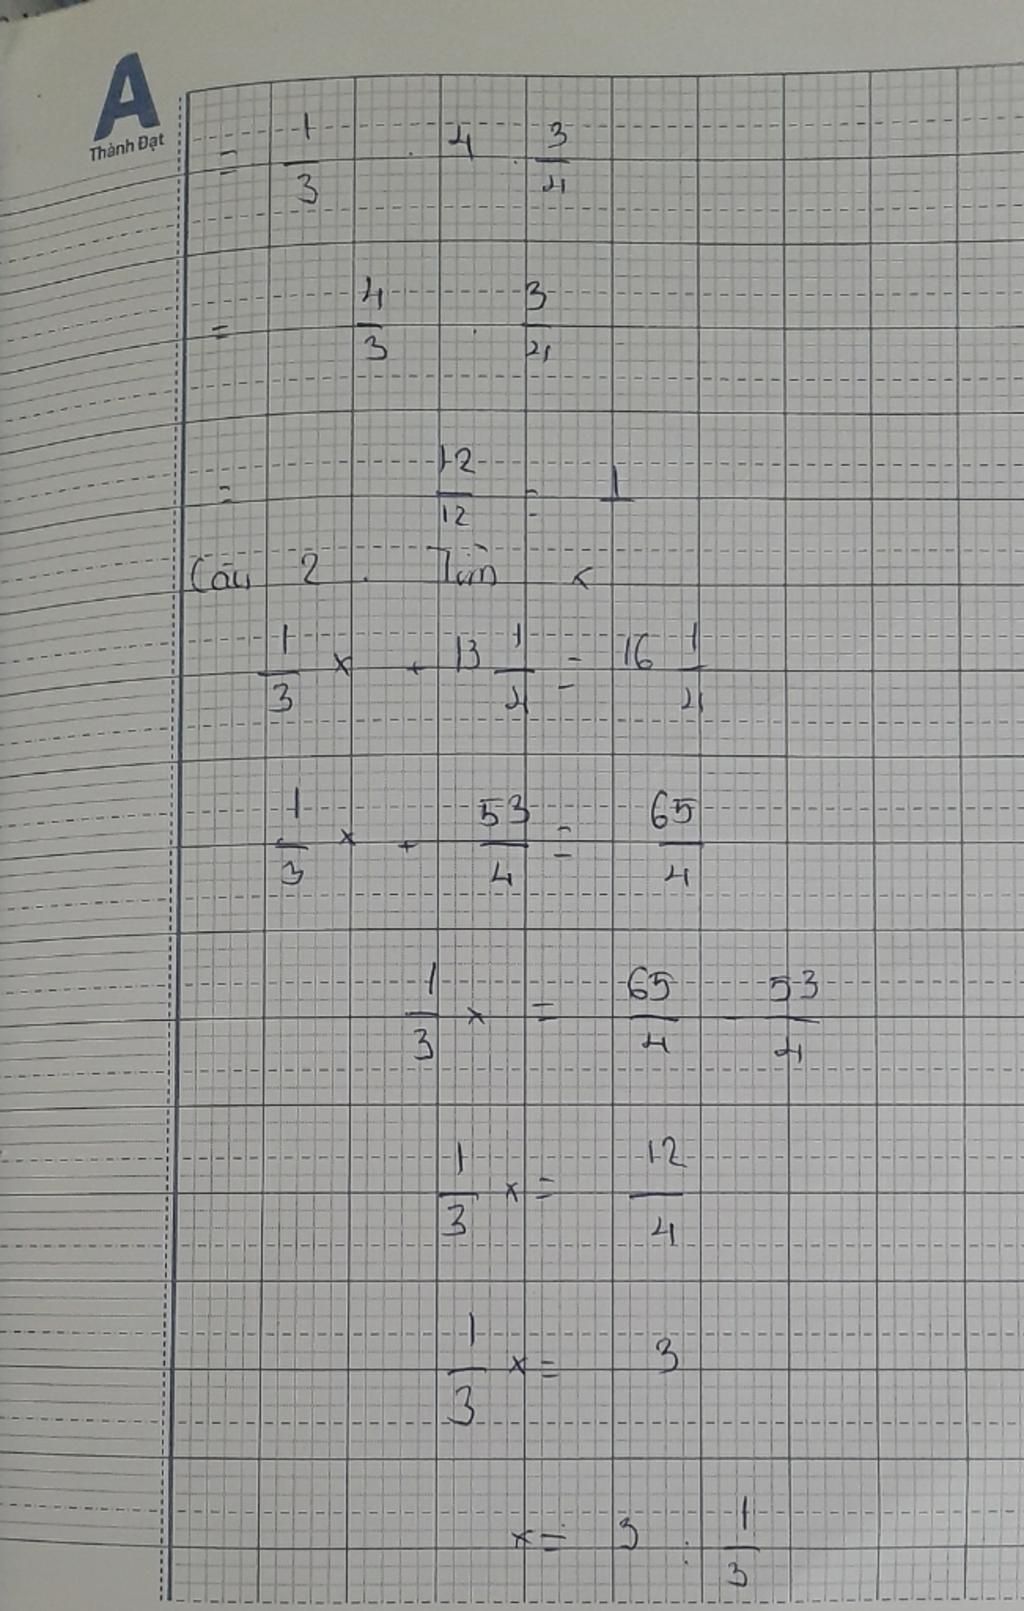 A
Thành Đạt
= 1/3 . 4 . 3/4
= 4/3 . 3/4
= 12/12 = 1
Câu 2. Tìm x
1/3 x + 13 1/4 = 16 1/4
1/3 x + 53/4 = 65/4
1/3 x = 65/4 - 53/4
1/3 x = 12/4
1/3 x = 3
x = 3 : 1/3